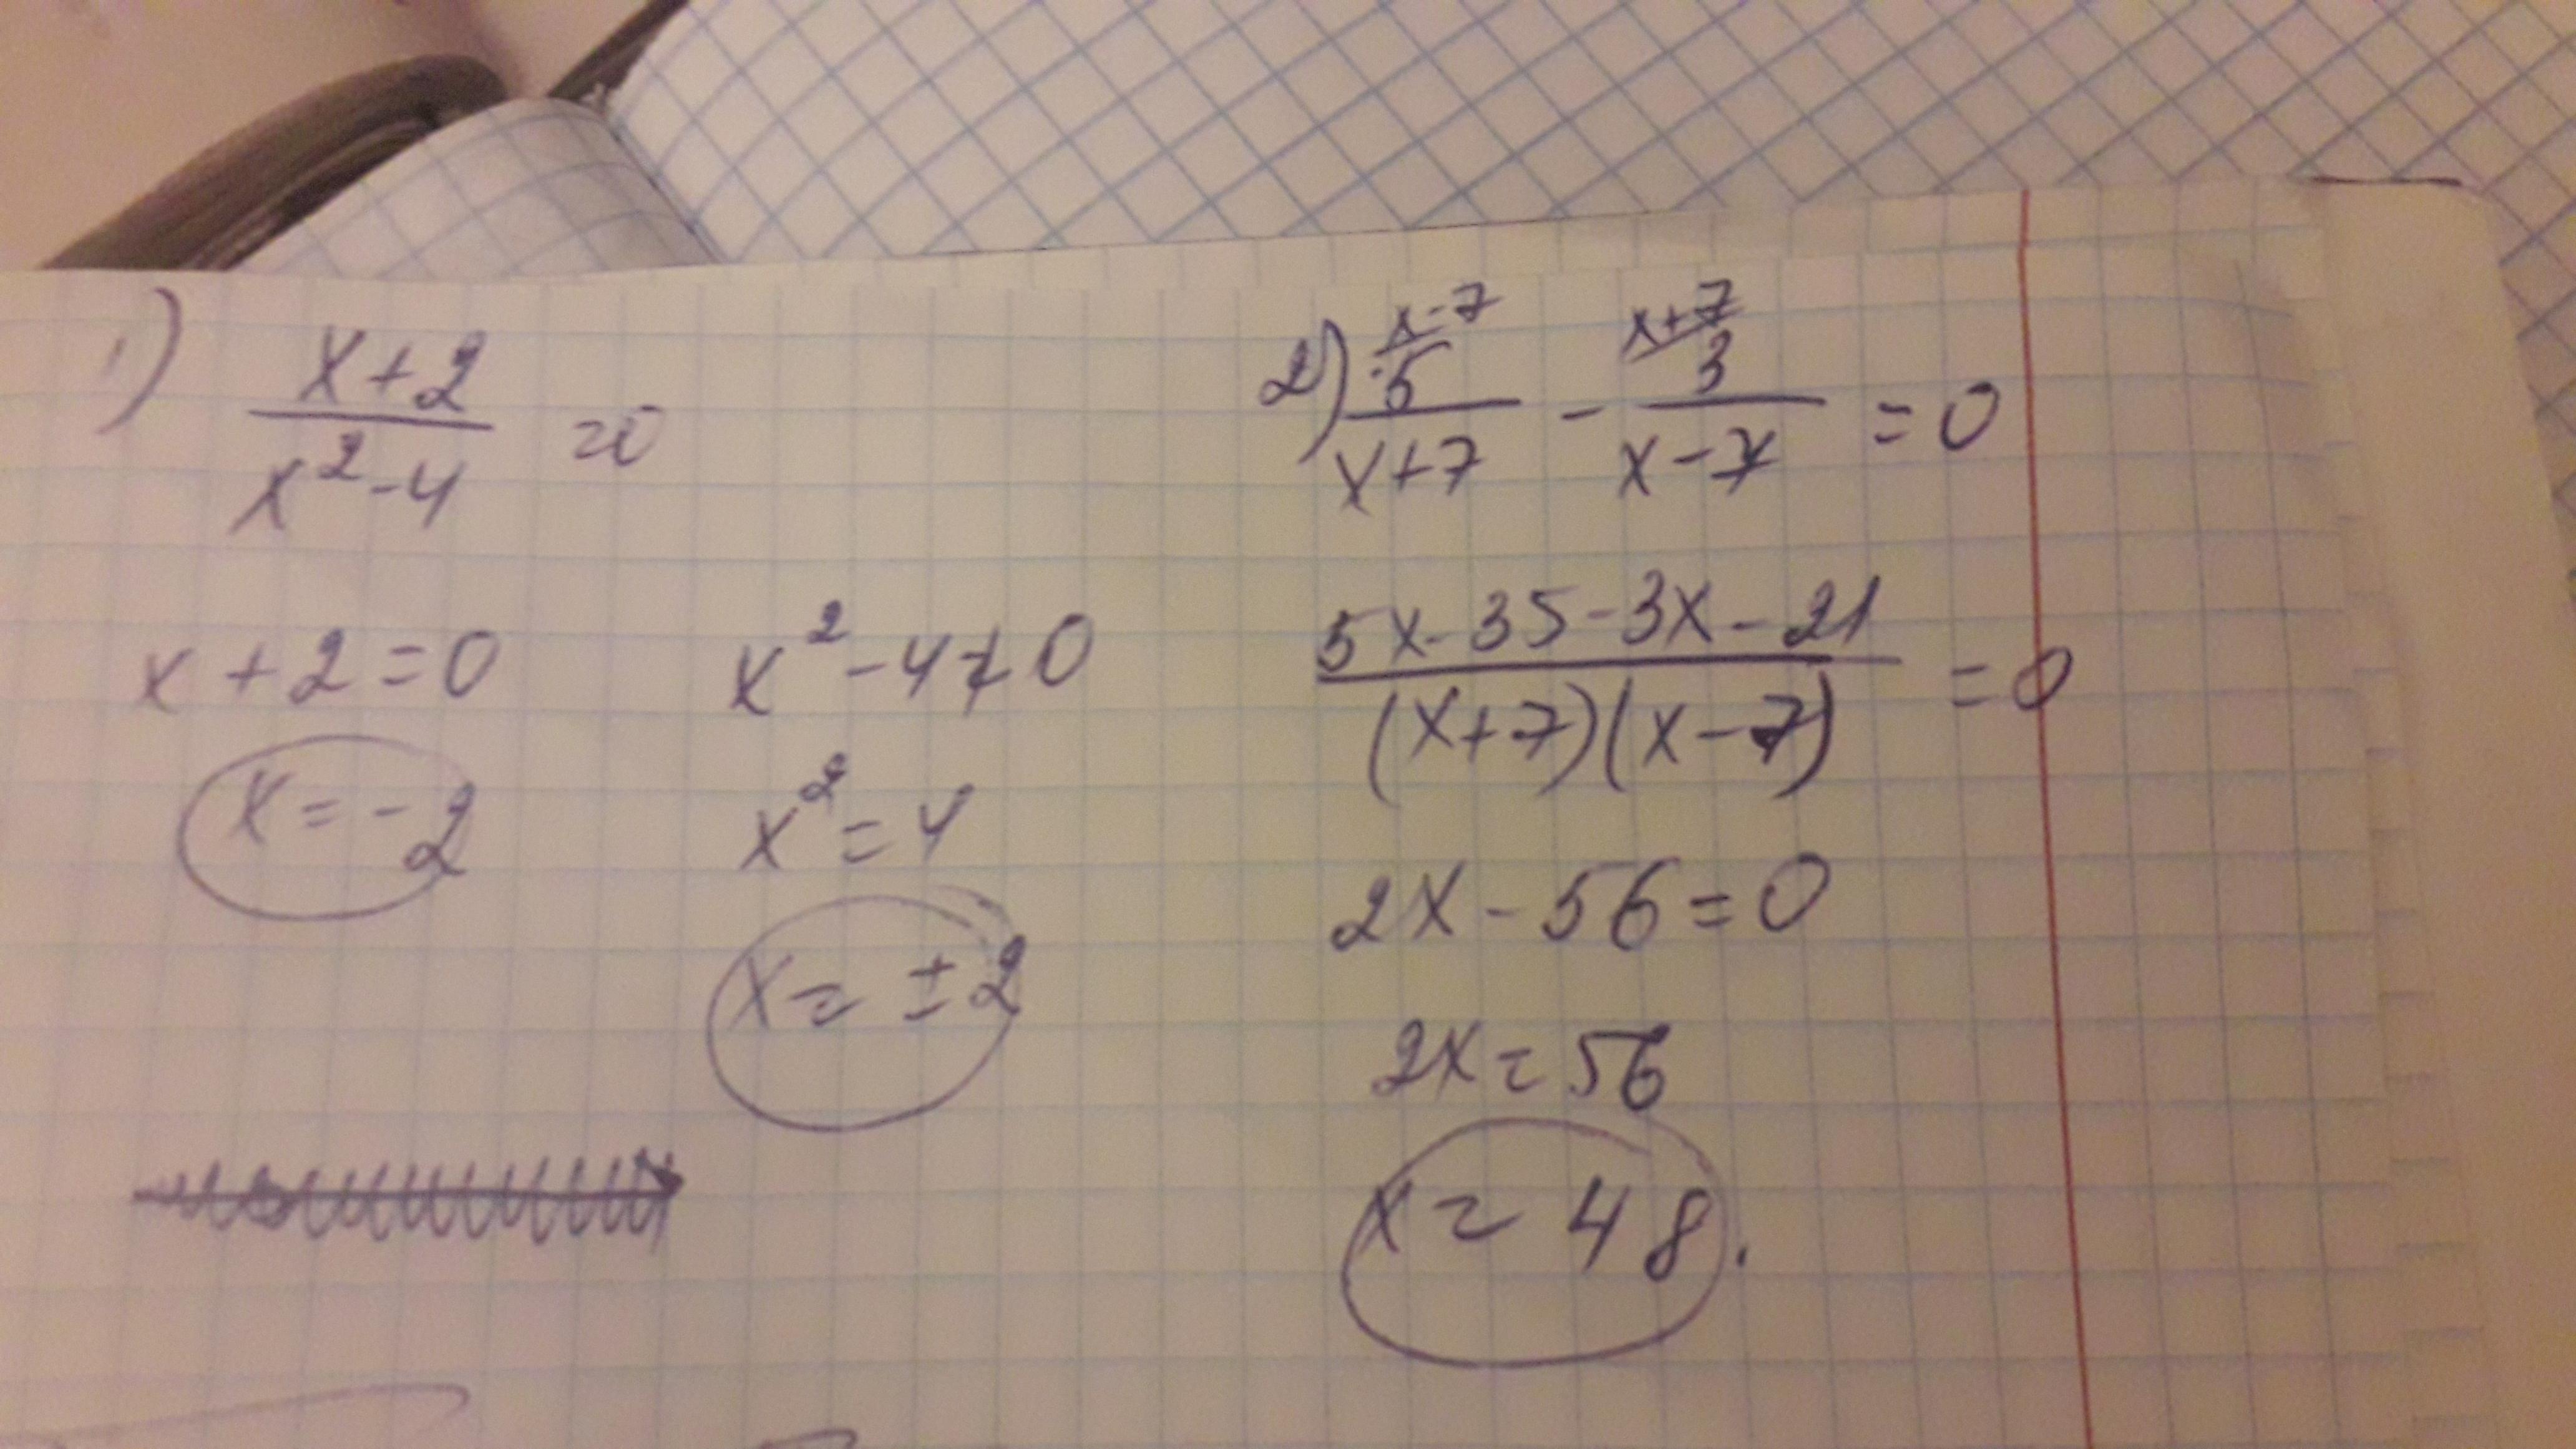 1) x+2
x²-4 =0
x+2=0
x=-2
x²-4≠0
x²=4
x=±2
2) x-7 x+7
5/x+7 - 3/x-7 =0
5x-35-3x-21
(x+7)(x-7) =0
2x-56=0
2x=56
x=48.